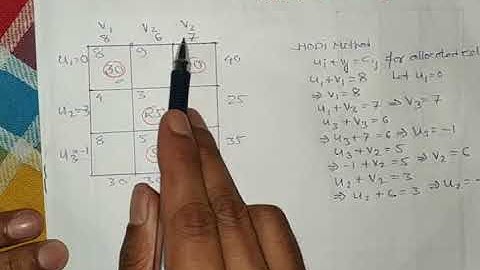 V1 V2 V2
8 6 7
u1=0 8 9 40
30
u2=-3 4 3 25
u3=-1 8 5 35
30
MODI Method
ui+vj = cij for allocated cell
u1+v1 = 8 Let u1=0
⇒ v1 = 8
u1+v3 = 7 ⇒ v3 = 7
u3+v3 = 6
⇒ u3+7 = 6 ⇒ u3 = -1
u3+v2 = 5
⇒ -1+v2 = 5 ⇒ v2 = 6
u2+v2 = 3
⇒ u2+6 = 3 ⇒ u2 = -